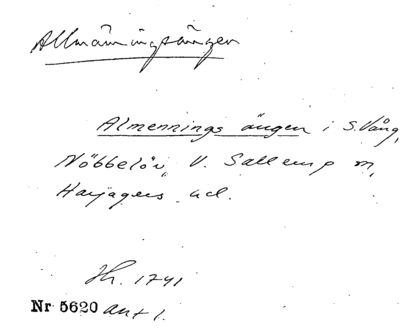 Allmänningsängen
Almennings ängen i S. Vång,
Nöbbelöv, V. Sallerup m,
Harjagers hd.
Jh. 1741
Nr 5620 ant 1.